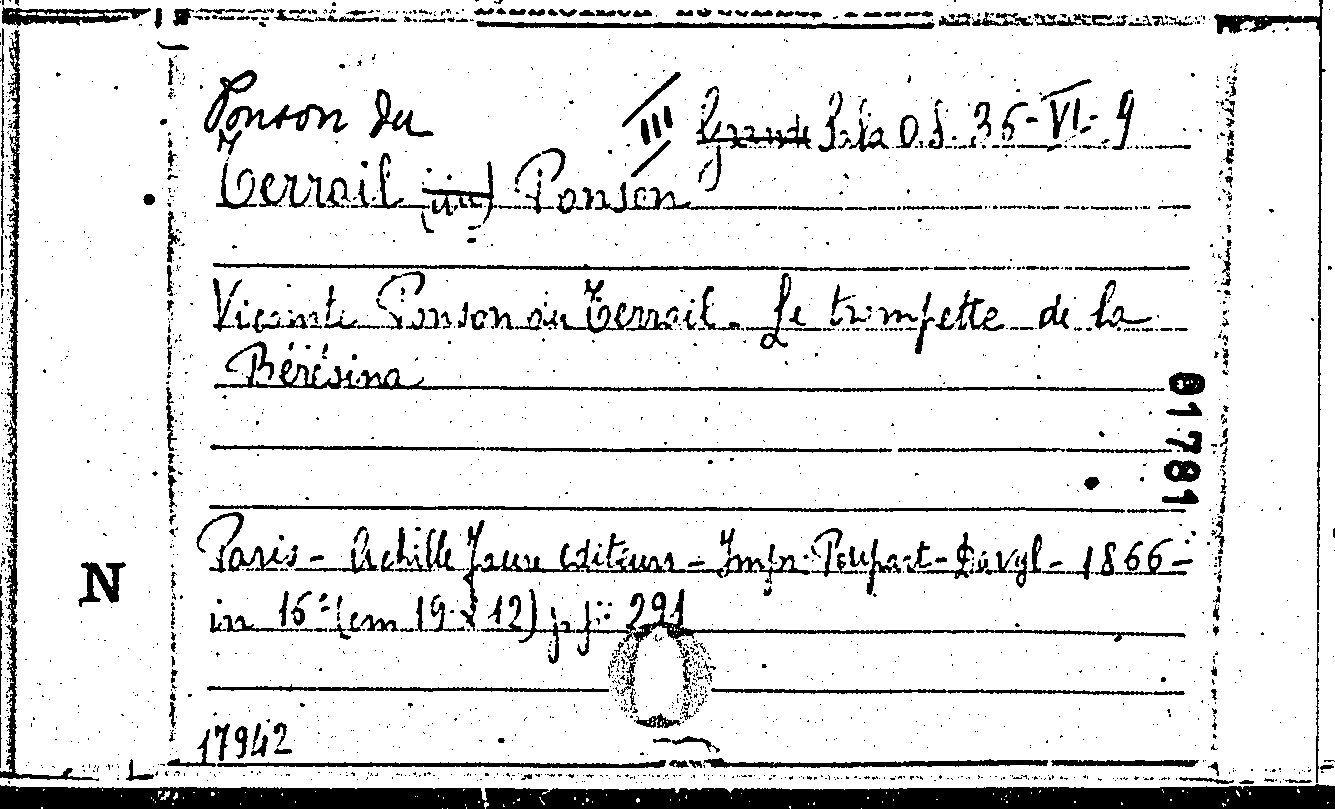 Ponson du
III Grande Sala O.S. 36-VI-9
Terrail (du) Ponson
Vicomte Ponson du Terrail. Le trompette de la
Bérésina
01781
Paris - Achille Faure éditeurs - Impr. Poupart-Davyl - 1866 -
N
in 16° (cm 19 x 12) pp. 291
17942